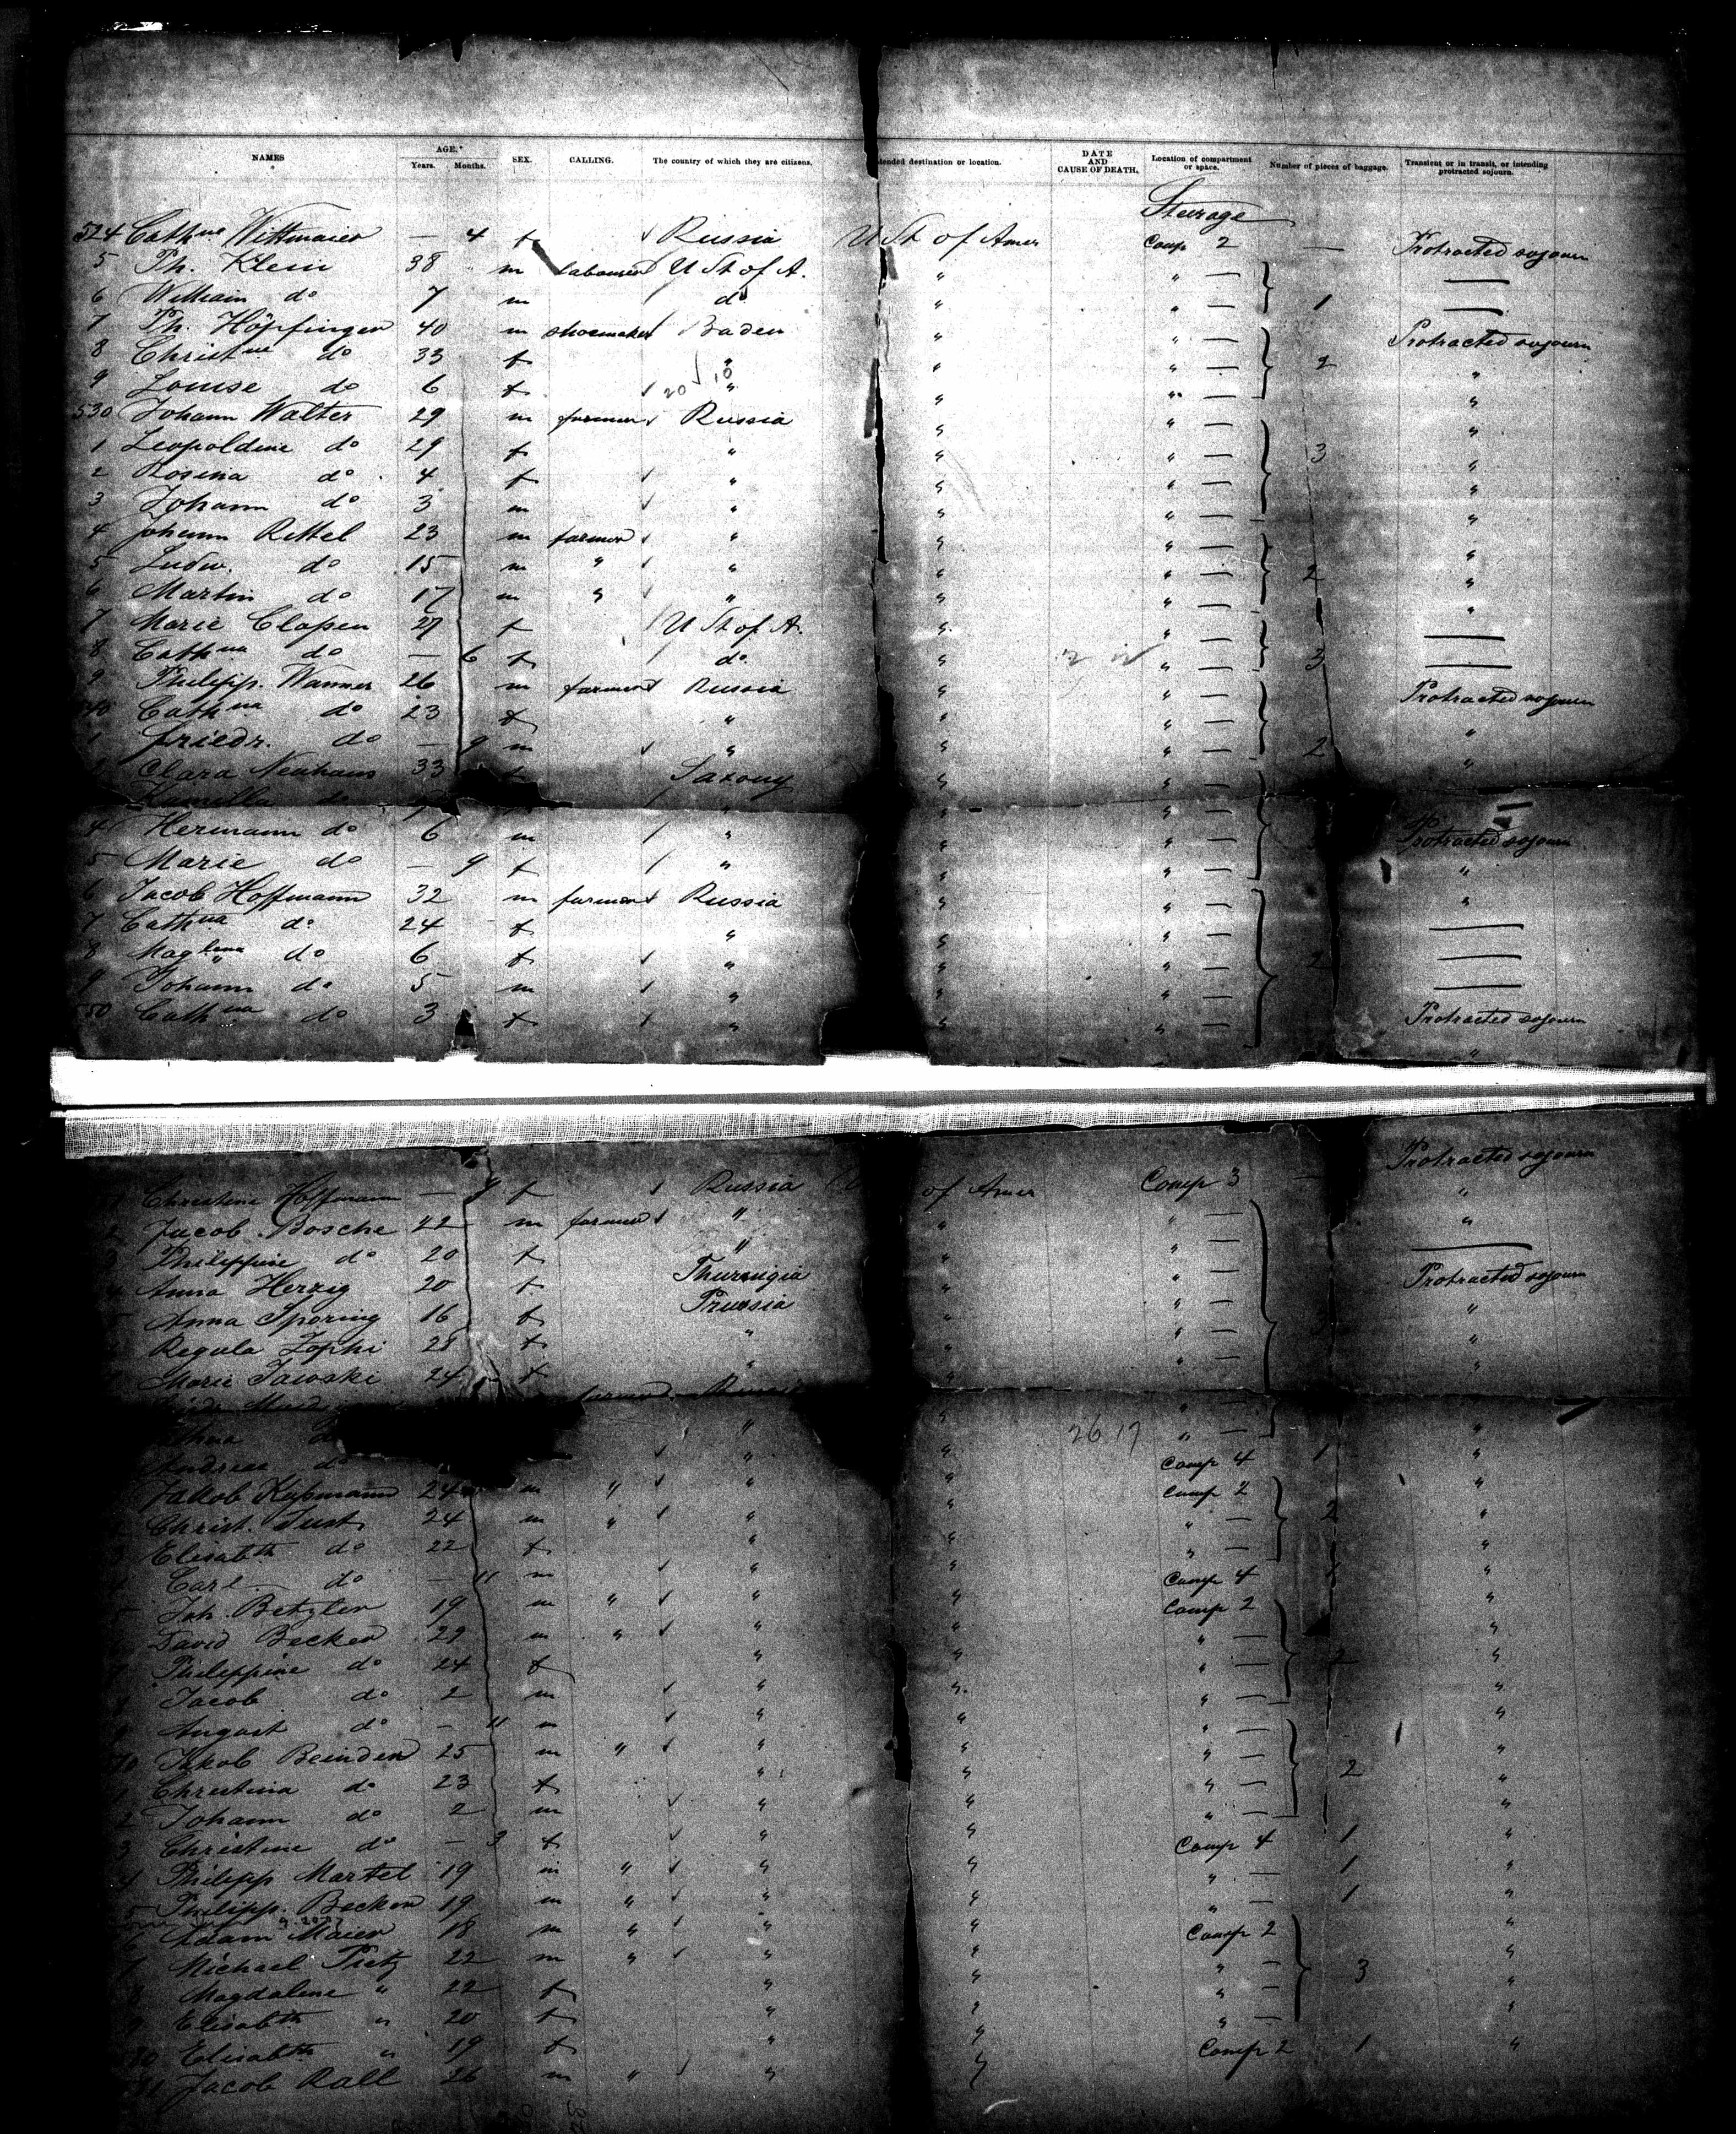 NAMES AGE. Years. Months. SEX. CALLING. The country of which they are citizens. tended destination or location. DATE AND CAUSE OF DEATH. Location of compartment or space. Number of pieces of baggage. Transient or in transit, or intending protracted sojourn.
Steerage
524 Cathne Wittmaier — 4 f Russia U St of Amer Comp 2 — Protracted sojourn
5 Ph. Klein 38 m labourer U St of A. " " — —
6 William do 7 m do " " — 1 —
7 Ph. Höpfinger 40 m shoemaker Baden " " — Protracted sojourn
8 Christne do 33 f " " " — 2 "
9 Louise do 6 f 20 10 " " " — "
530 Johann Walter 29 m farmer Russia " " — "
1 Leopoldine do 29 f " " " — 3 "
2 Rosina do 4 f " " " — "
3 Johann do 3 m " " " — "
4 Johann Rittel 23 m farmer " " " — "
5 Ludw. do 15 m " " " " — 2 "
6 Martin do 17 m " " " " — "
7 Marie Clasen 27 f U St of A. " " — —
8 Cathna do — 6 f do " " — 3 —
9 Philipp. Wanner 26 m farmer Russia " " — Protracted sojourn
540 Cathna do 23 f " " " — "
1 Friedr. do — 9 m " " " — 2 "
2 Clara Neuhaus 33 f Saxony " " —
Kamilla do " " " —
4 Hermann do 6 m " " " — Protracted sojourn
5 Marie do — 9 f " " " — "
6 Jacob Hoffmann 32 m farmer Russia " " — "
7 Cathna do 24 f " " " — —
8 Maglena do 6 f " " " — 2 —
9 Johann do 5 m " " " — —
550 Cathna do 3 f " " " — Protracted sojourn
"
Protracted sojourn
1 Christine Hoffmann — 9 f Russia of Amer Comp 3 — "
2 Jacob Bosche 22 m farmer " " " — "
3 Philippine do 20 f " " " — —
4 Anna Herzig 20 f Thuringia " " — Protracted sojourn
5 Anna Sporing 16 f Prussia " " — "
Regula Zophi 28 f " " " — 3 "
Marie Jaioski 24 f " " " — "
farmer Russia " " —
do " " 26 17 " — "
Andreas do " " Comp 4 1 "
Jakob Kußmann 24 m " " " Comp 2 "
2 Christ. Just 24 m " " " " — 2 "
3 Elisabth do 22 f " " " — "
4 Carl do — 11 m " " Comp 4 1 "
5 Joh. Betzler 19 m " " " Comp 2 "
David Becker 29 m " " " " — "
7 Philippine do 24 f " " " — 2 "
8 Jacob do 2 m " " " — "
9 August do — 11 m " " " — "
70 Jakob Beinder 25 m " " " " — "
1 Christina do 23 f " " " — 2 "
2 Johann do 2 m " " " — "
3 Christine do — 3 f " " Comp 4 1 "
4 Philipp Martel 19 m " " " " — 1 "
5 Philipp. Becker 19 m " " " " — 1 "
6 Adam Maier 18 m " " " Comp 2 "
7 Michael Pietz 22 m " " " " — 3 "
8 Magdalene " 22 f " " " — "
9 Elisabth " 20 f " " " — "
580 Elisabth " 19 f " " Comp 2 1 "
81 Jacob Rall 26 m " " "